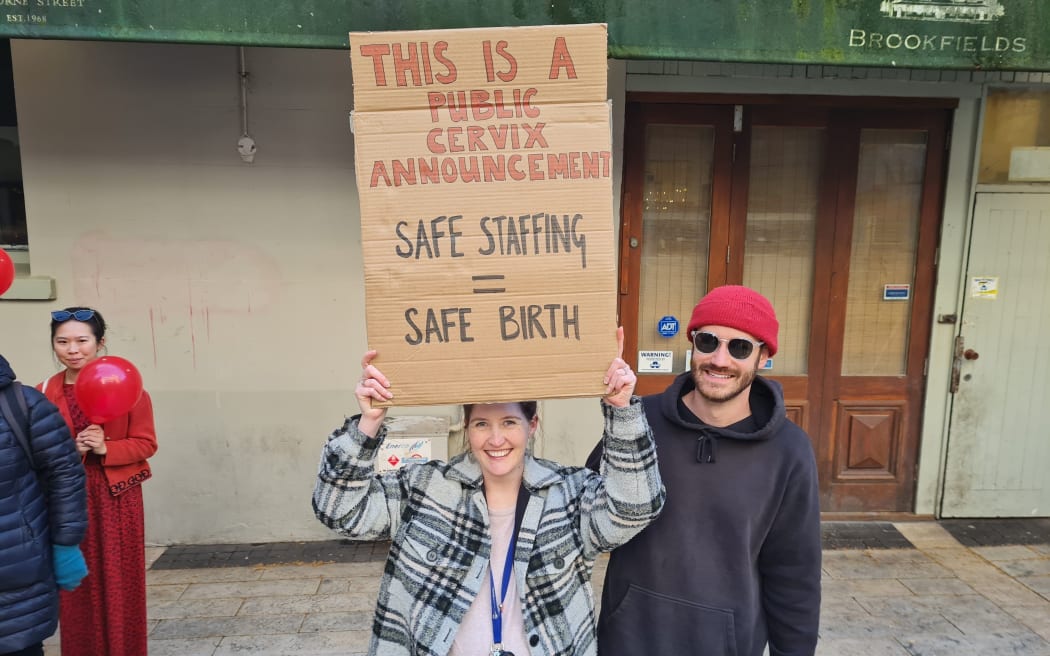 RNE STREET
EST.1968
BROOKFIELDS
THIS IS A
PUBLIC
CERVIX
ANNOUNCEMENT
SAFE STAFFING
=
SAFE BIRTH
ADT
WARNING!